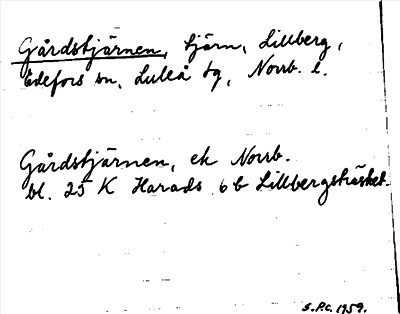 Gårdstjärnen, tjärn, Lillberg,
Edefors sn, Luleå tg, Norrb. l.
Gårdstjärnen, ek Norrb.
bl. 25 K Harads 6 b Lillbergsträsket.
S.P.C. 1959.